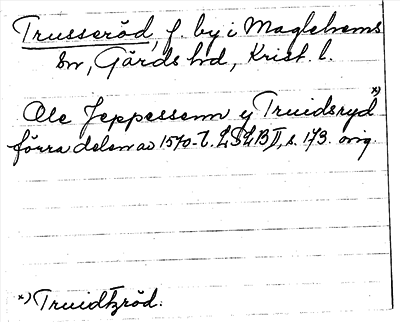 Trusseröd, f. by i Maglehems
sn, Gärds hd, Krist. l.
Ole Jeppessenn y Truidsryd *)
förra delen av 1570-t. LSLB II, s. 173. orig.
*) Truidtzröd.